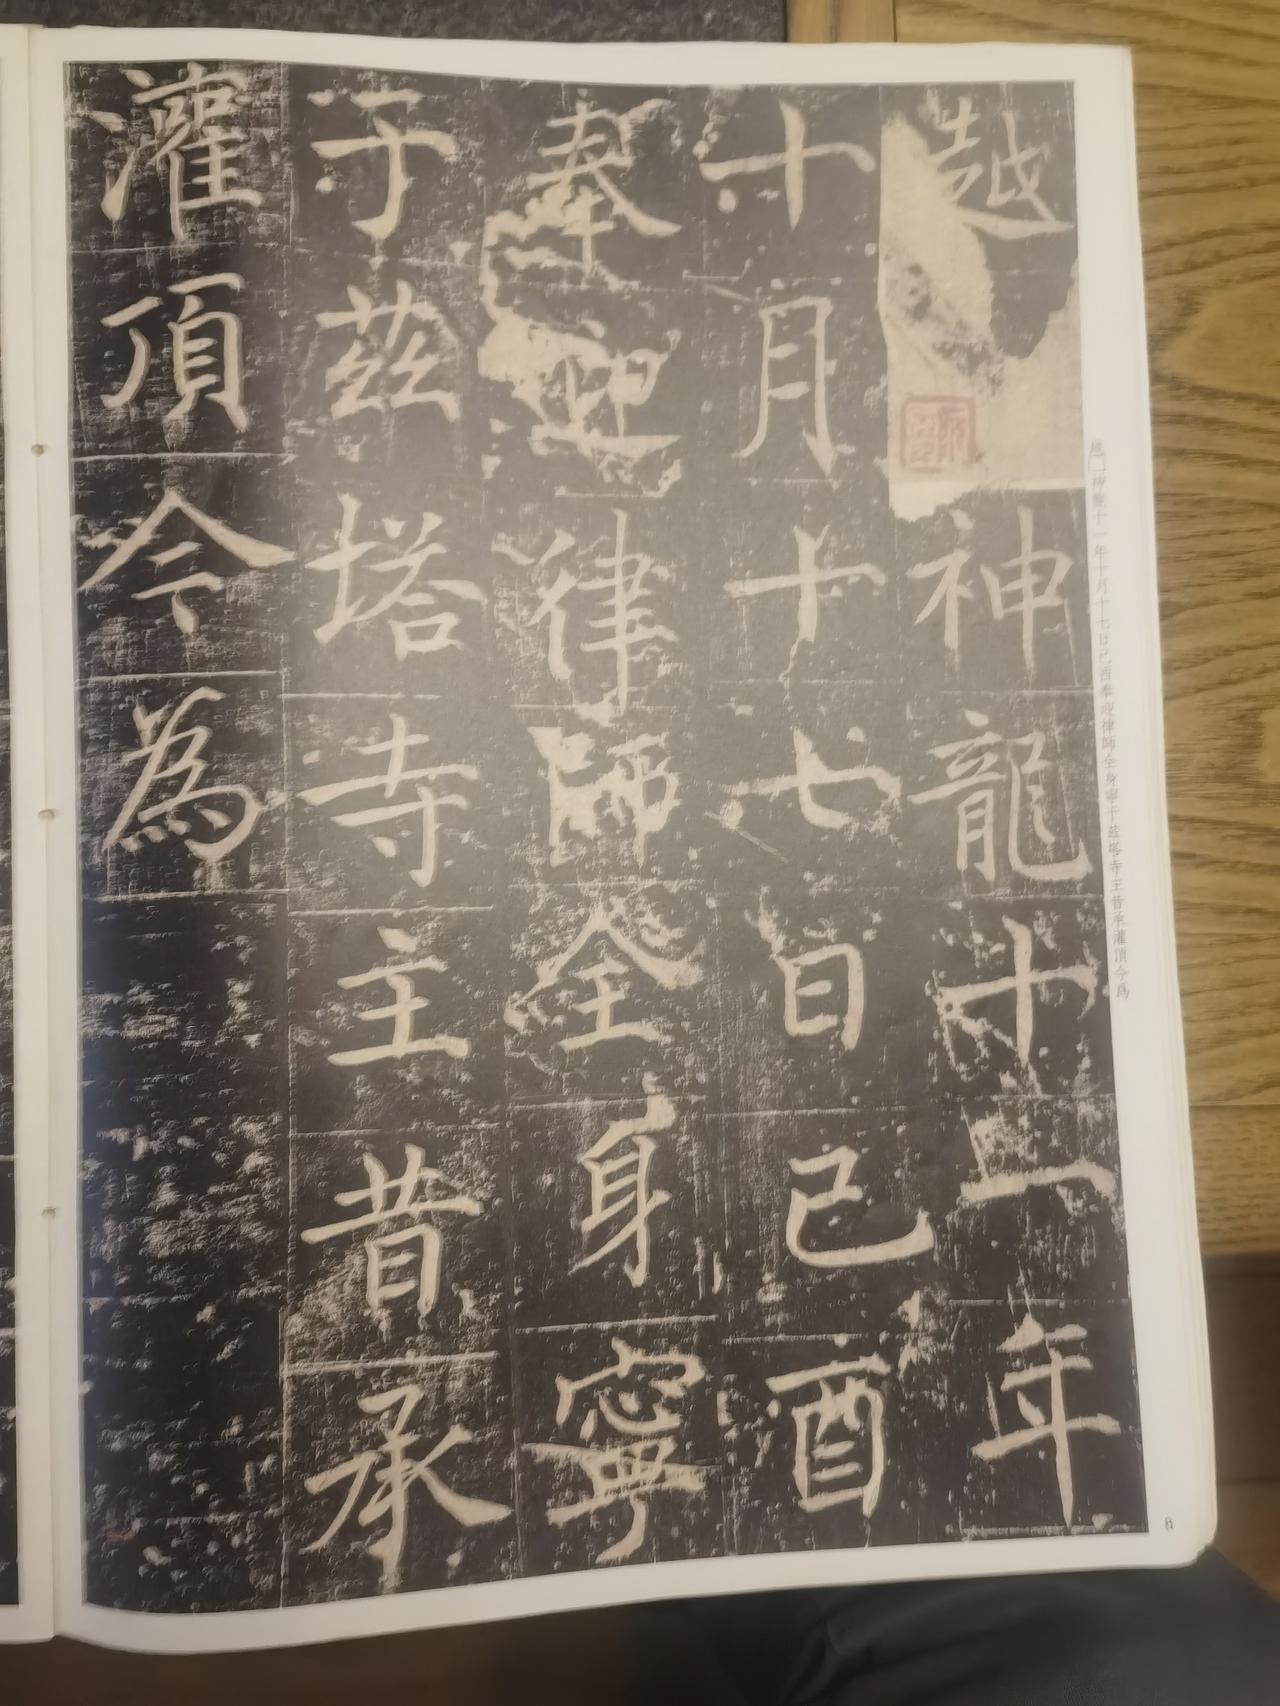 越
神龍十一年
十月十七日己酉
奉迎律師全身寧
于兹塔寺主昔承
灌頂今為
越□神龍十一年十月十七日己酉奉迎律師全身寧于兹塔寺主昔承灌頂今爲